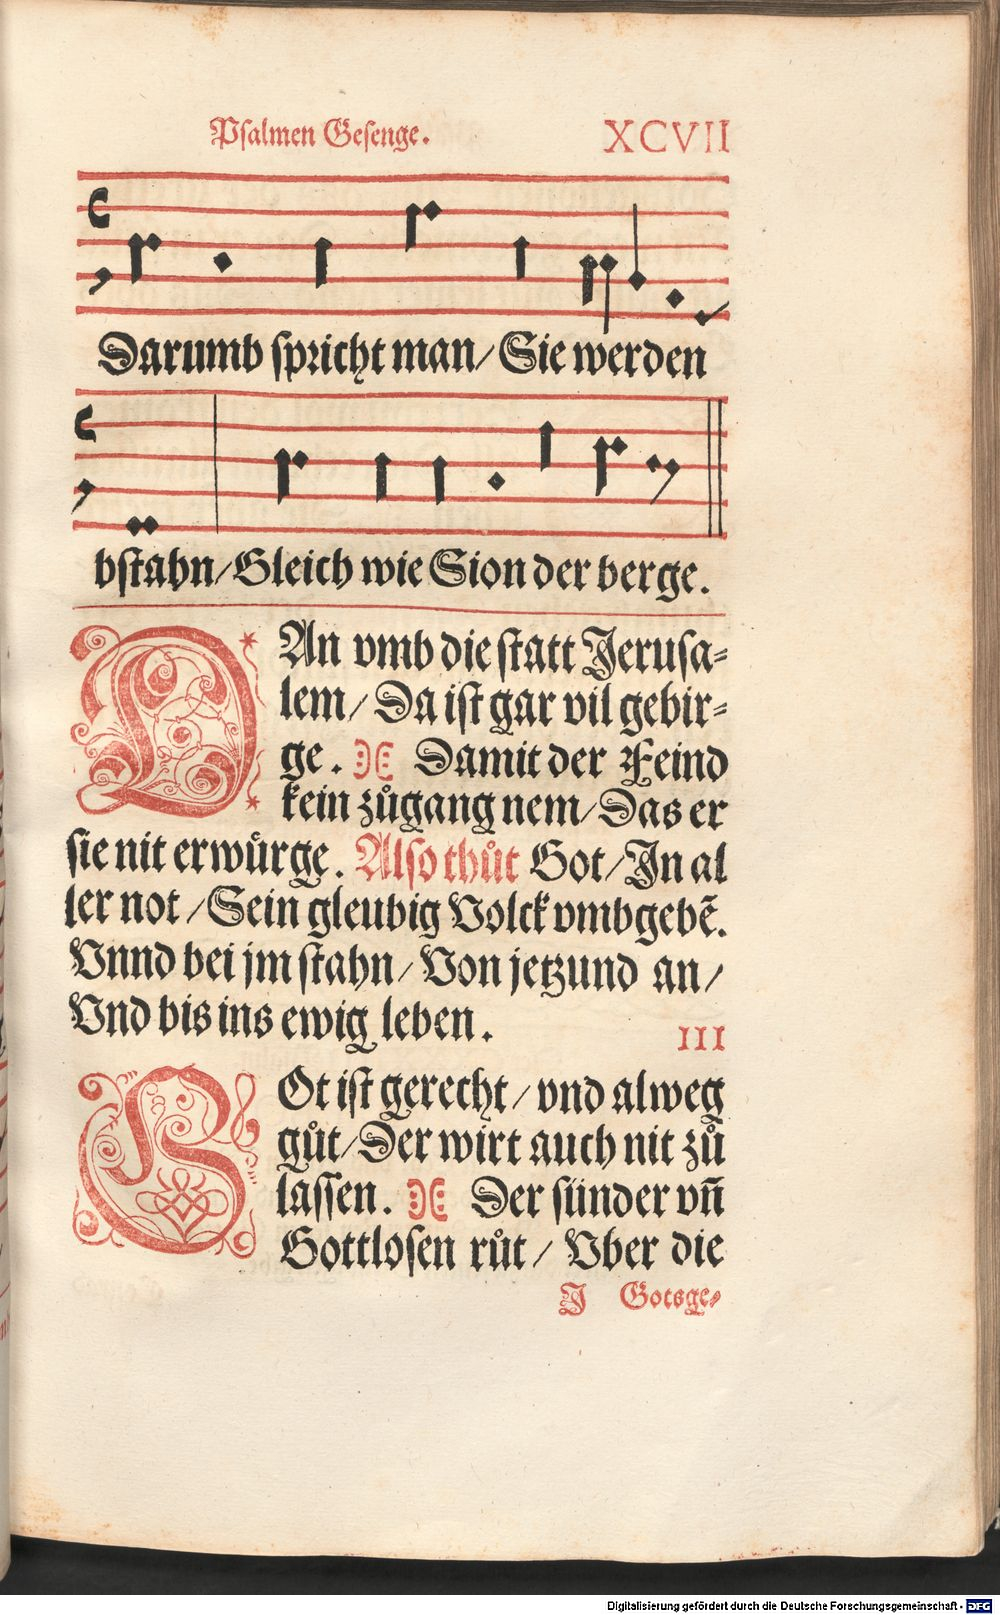 Psalmen Gesenge. XCVII
Darumb spricht man/ Sie werden
bstahn/ Gleich wie Sion der berge.
DAn vmb die statt Jerusa-
lem/ Da ist gar vil gebir-
ge. Damit der Feind
kein zůgang nem/ Das er
sie nit erwürge. Also thůt Got/ In al
ler not/ Sein gleubig Volck vmbgebē.
Vnnd bei jm stahn/ Von jetzund an/
Vnd bis ins ewig leben.
III
GOt ist gerecht/ vnd alweg
gůt/ Der wirt auch nit zů
lassen. Der sünder vn̄
Gottlosen růt/ Vber die
J Gotsge-
Digitalisierung gefördert durch die Deutsche Forschungsgemeinschaft - DFG